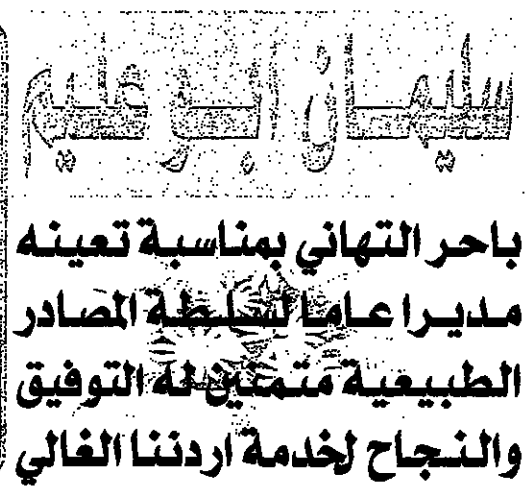 سليمان ابو عليم
باحر التهاني بمناسبة تعينه
مديرا عاما لسلطة المصادر
الطبيعية متمنين له التوفيق
والنجاح لخدمة اردننا الغالي